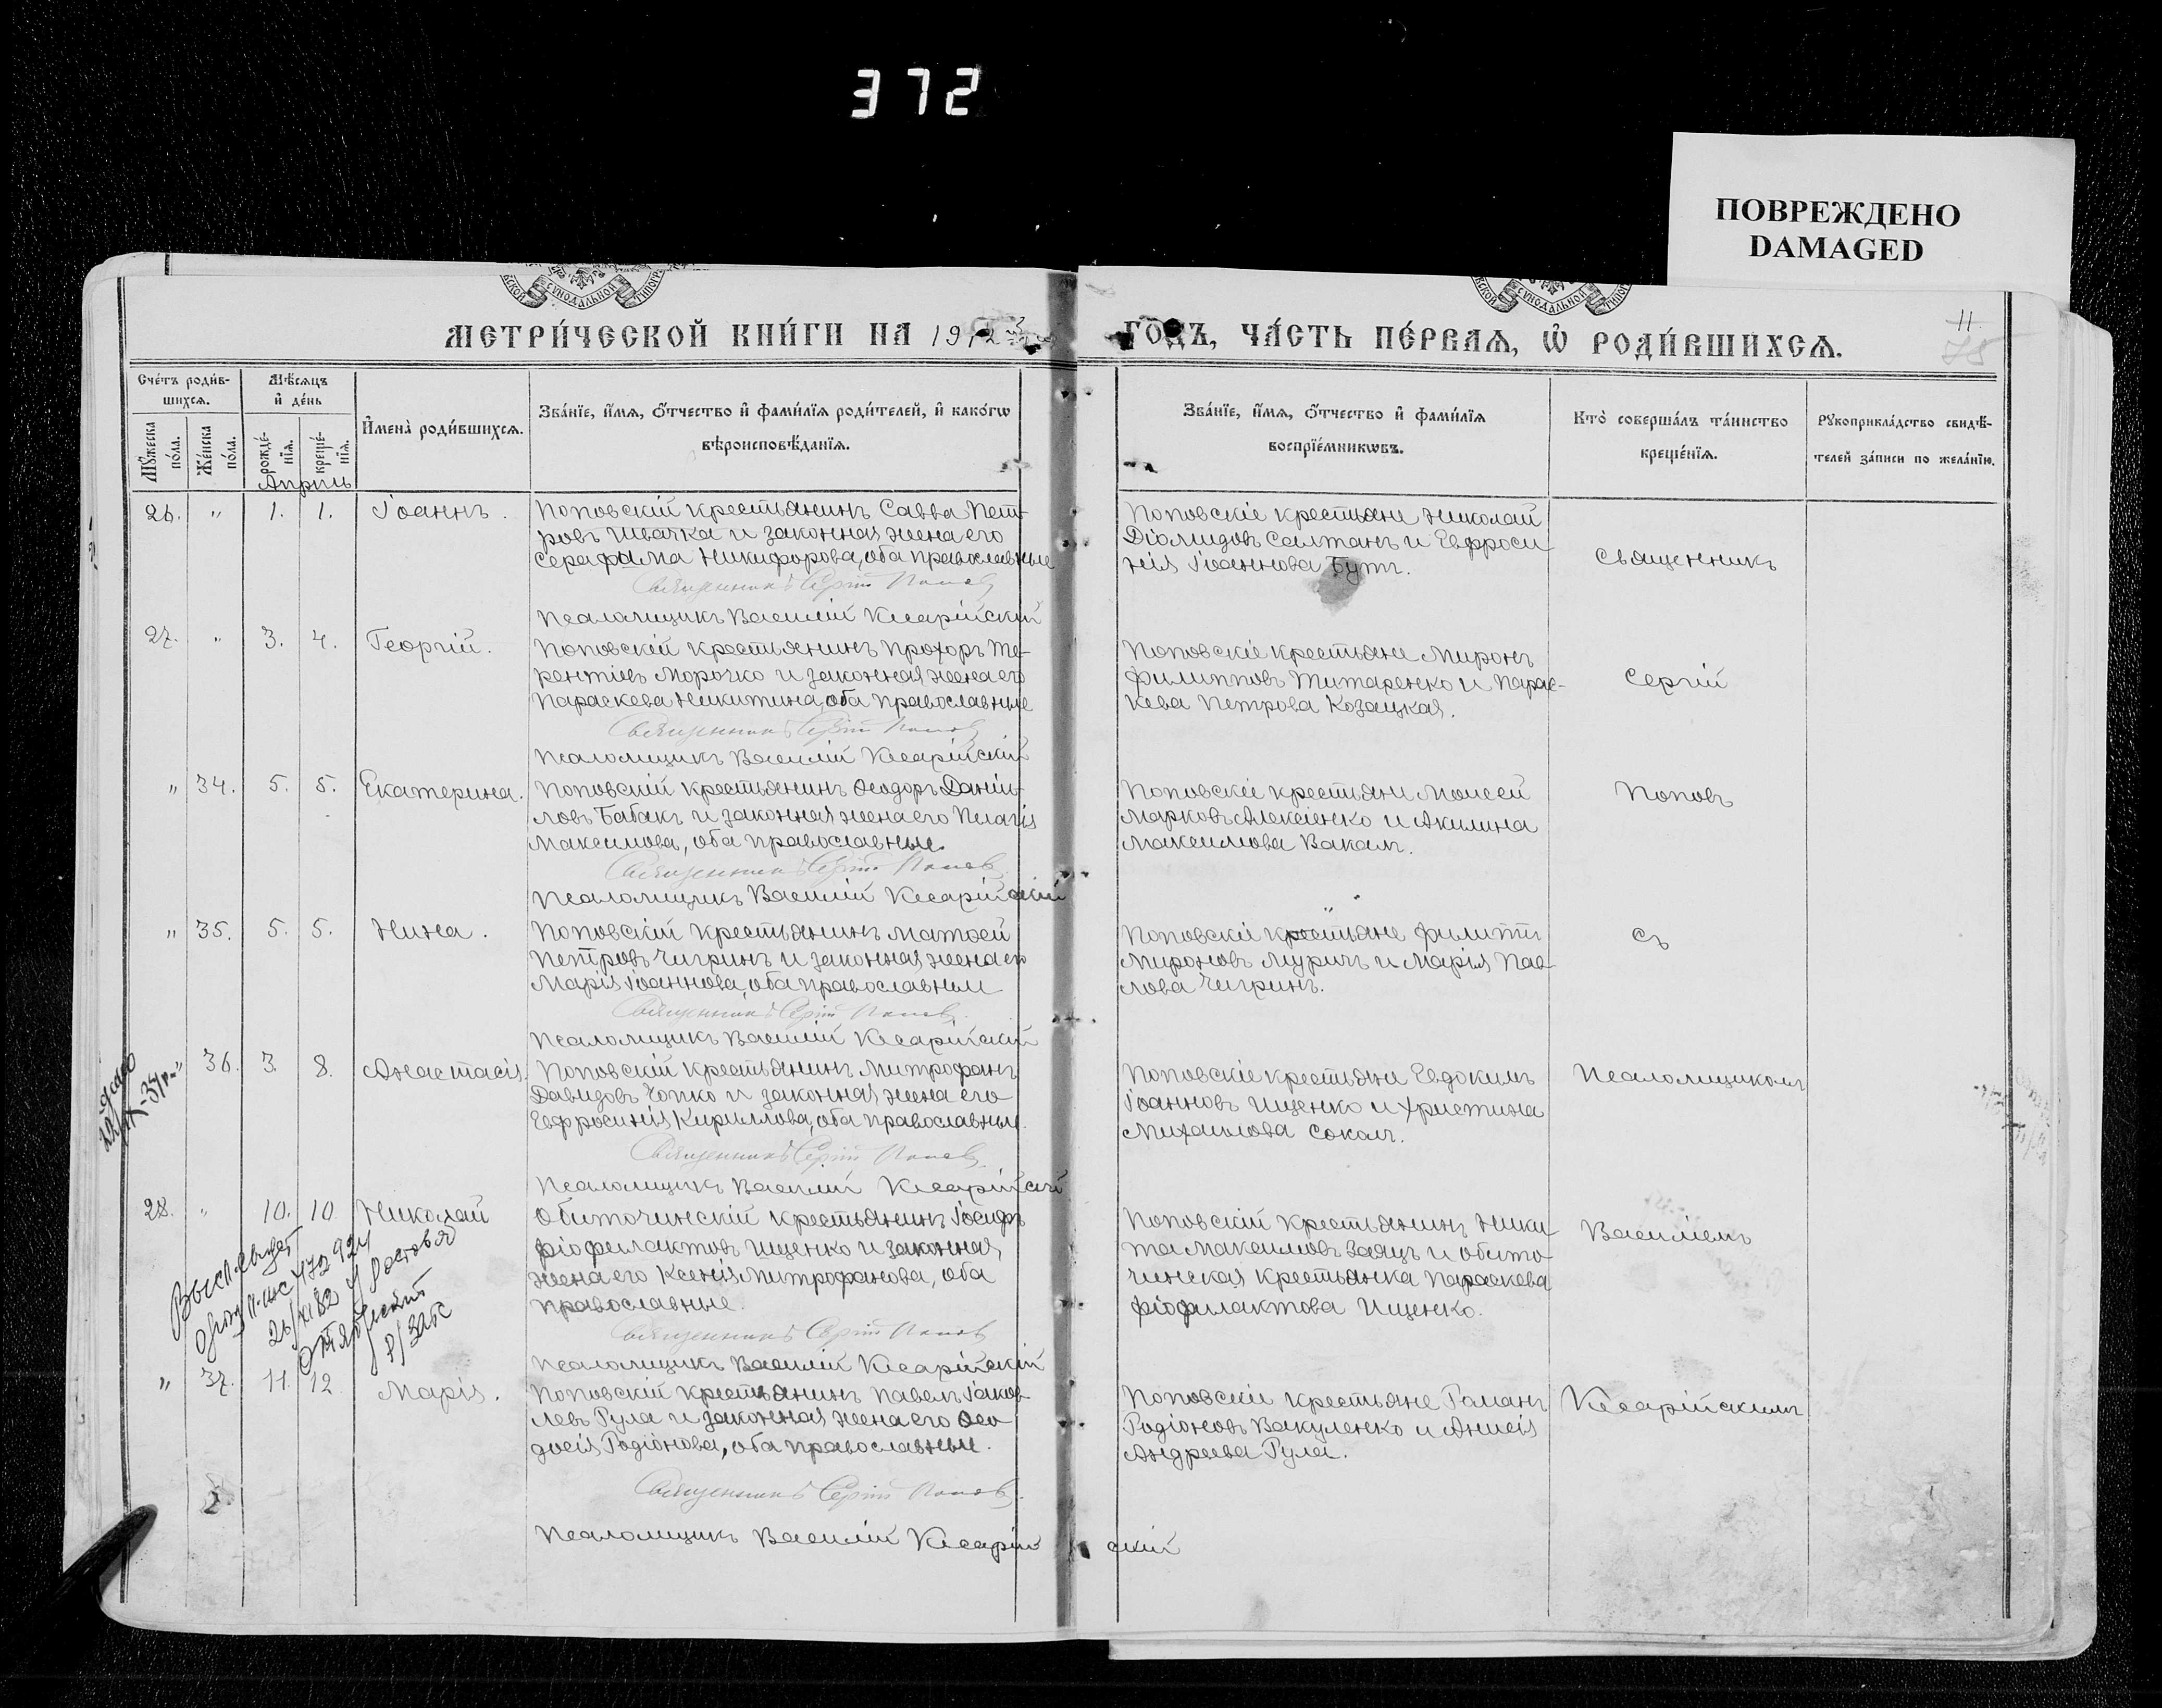 372
ПОВРЕЖДЕНО
DAMAGED
МЕТРИ́ЧЕСКОЙ КНИ́ГИ НА 191
ГОДЪ, ЧА́СТЬ ПЕ́РВАЯ, Ѡ҆ РОДИ́ВШИХСЯ.
11
75
Сче́тъ роди́в-
шихся.
Му́жеска
по́ла.
Же́нска
по́ла.
Мѣ́сяцъ
и҆ де́нь
рожде́-
нїя.
креще́-
нїя.
И҆мена̀ роди́вшихся.
Зва́нїе, и҆́мя, ѻ҆́тчество и҆ фами́лїя роди́телей, и҆ како́гѡ
вѣроисповѣ́данїя.
Зва́нїе, и҆́мя, ѻ҆́тчество и҆ фами́лїя
воспрїе́мникѡвъ.
Кто̀ соверша́лъ та́инство
креще́нїя.
Рукоприкла́дство свидѣ́-
телей за́писи по жела́нїю.
Апрѣль
26. " 1. 1. Іоаннъ.
Поповскій крестьянинъ Савва Пет-
ровъ Швачка и законная жена его
Серафима Никифорова, оба православные
Священникъ Сергій Поповъ
Псаломщикъ Василій Кесарійскій
Поповскіе крестьяне Николай
Діомидовъ Салтанъ и Евфроси
нія Іоаннова Бутъ.
Священникъ
27. " 3. 4. Георгій.
Поповскій крестьянинъ Прохоръ Те-
рентіевъ Морочко и законная жена его
Параскева Никитина, оба православные
Священникъ Сергій Поповъ
Псаломщикъ Василій Кесарійскій
Поповскіе крестьяне Миронъ
Филипповъ Титаренко и Парас-
кева Петрова Козацкая.
Сергій
" 34. 5. 5. Екатерина.
Поповскій крестьянинъ Ѳеодоръ Даніи-
ловъ Бабакъ и законная жена его Пелагія
Максимова, оба православные.
Священникъ Сергій Поповъ
Псаломщикъ Василій Кесарійскій
Поповскіе крестьяне Моисей
Марковъ Алексіенко и Акилина
Максимова Вакалъ.
Поповъ
" 35. 5. 5. Нина.
Поповскій крестьянинъ Матѳей
Петровъ Чигринъ и законная жена его
Марія Іоаннова, оба православные
Священникъ Сергій Поповъ
Псаломщикъ Василій Кесарійскій
Поповскіе крестьяне Филиппъ
Мироновъ Муричъ и Марія Пав-
лова Чигринъ.
съ
" 36. 3. 8. Анастасія.
Поповскій крестьянинъ Митрофанъ
Давидовъ Чопко и законная жена его
Евфросинія Кириллова, оба православные.
Священникъ Сергій Поповъ
Псаломщикъ Василій Кесарійскій
Поповскіе крестьяне Евдокимъ
Іоанновъ Ищенко и Христина
Михаилова Соколъ.
Псаломщикомъ
28. " 10. 10. Николай
Обиточинскій крестьянинъ Іосифъ
Ѳіофилактовъ Ищенко и законная
жена его Ксенія Митрофанова, оба
православные.
Священникъ Сергій Поповъ
Псаломщикъ Василій Кесарійскій
Поповскій крестьянинъ Ники-
та Максимовъ Заяцъ и обито-
чинская крестьянка Параскева
Ѳіофилактова Ищенко.
Василіемъ
" 37. 11. 12. Марія.
Поповскій крестьянинъ Павелъ Іаков-
левъ Рула и законная жена его Ѳео
досія Родіонова, оба православные.
Священникъ Сергій Поповъ.
Псаломщикъ Василій Кесарійскій
Поповскіе крестьяне Романъ
Родіоновъ Вакуленко и Анисія
Андреева Рула.
Кесарійскимъ